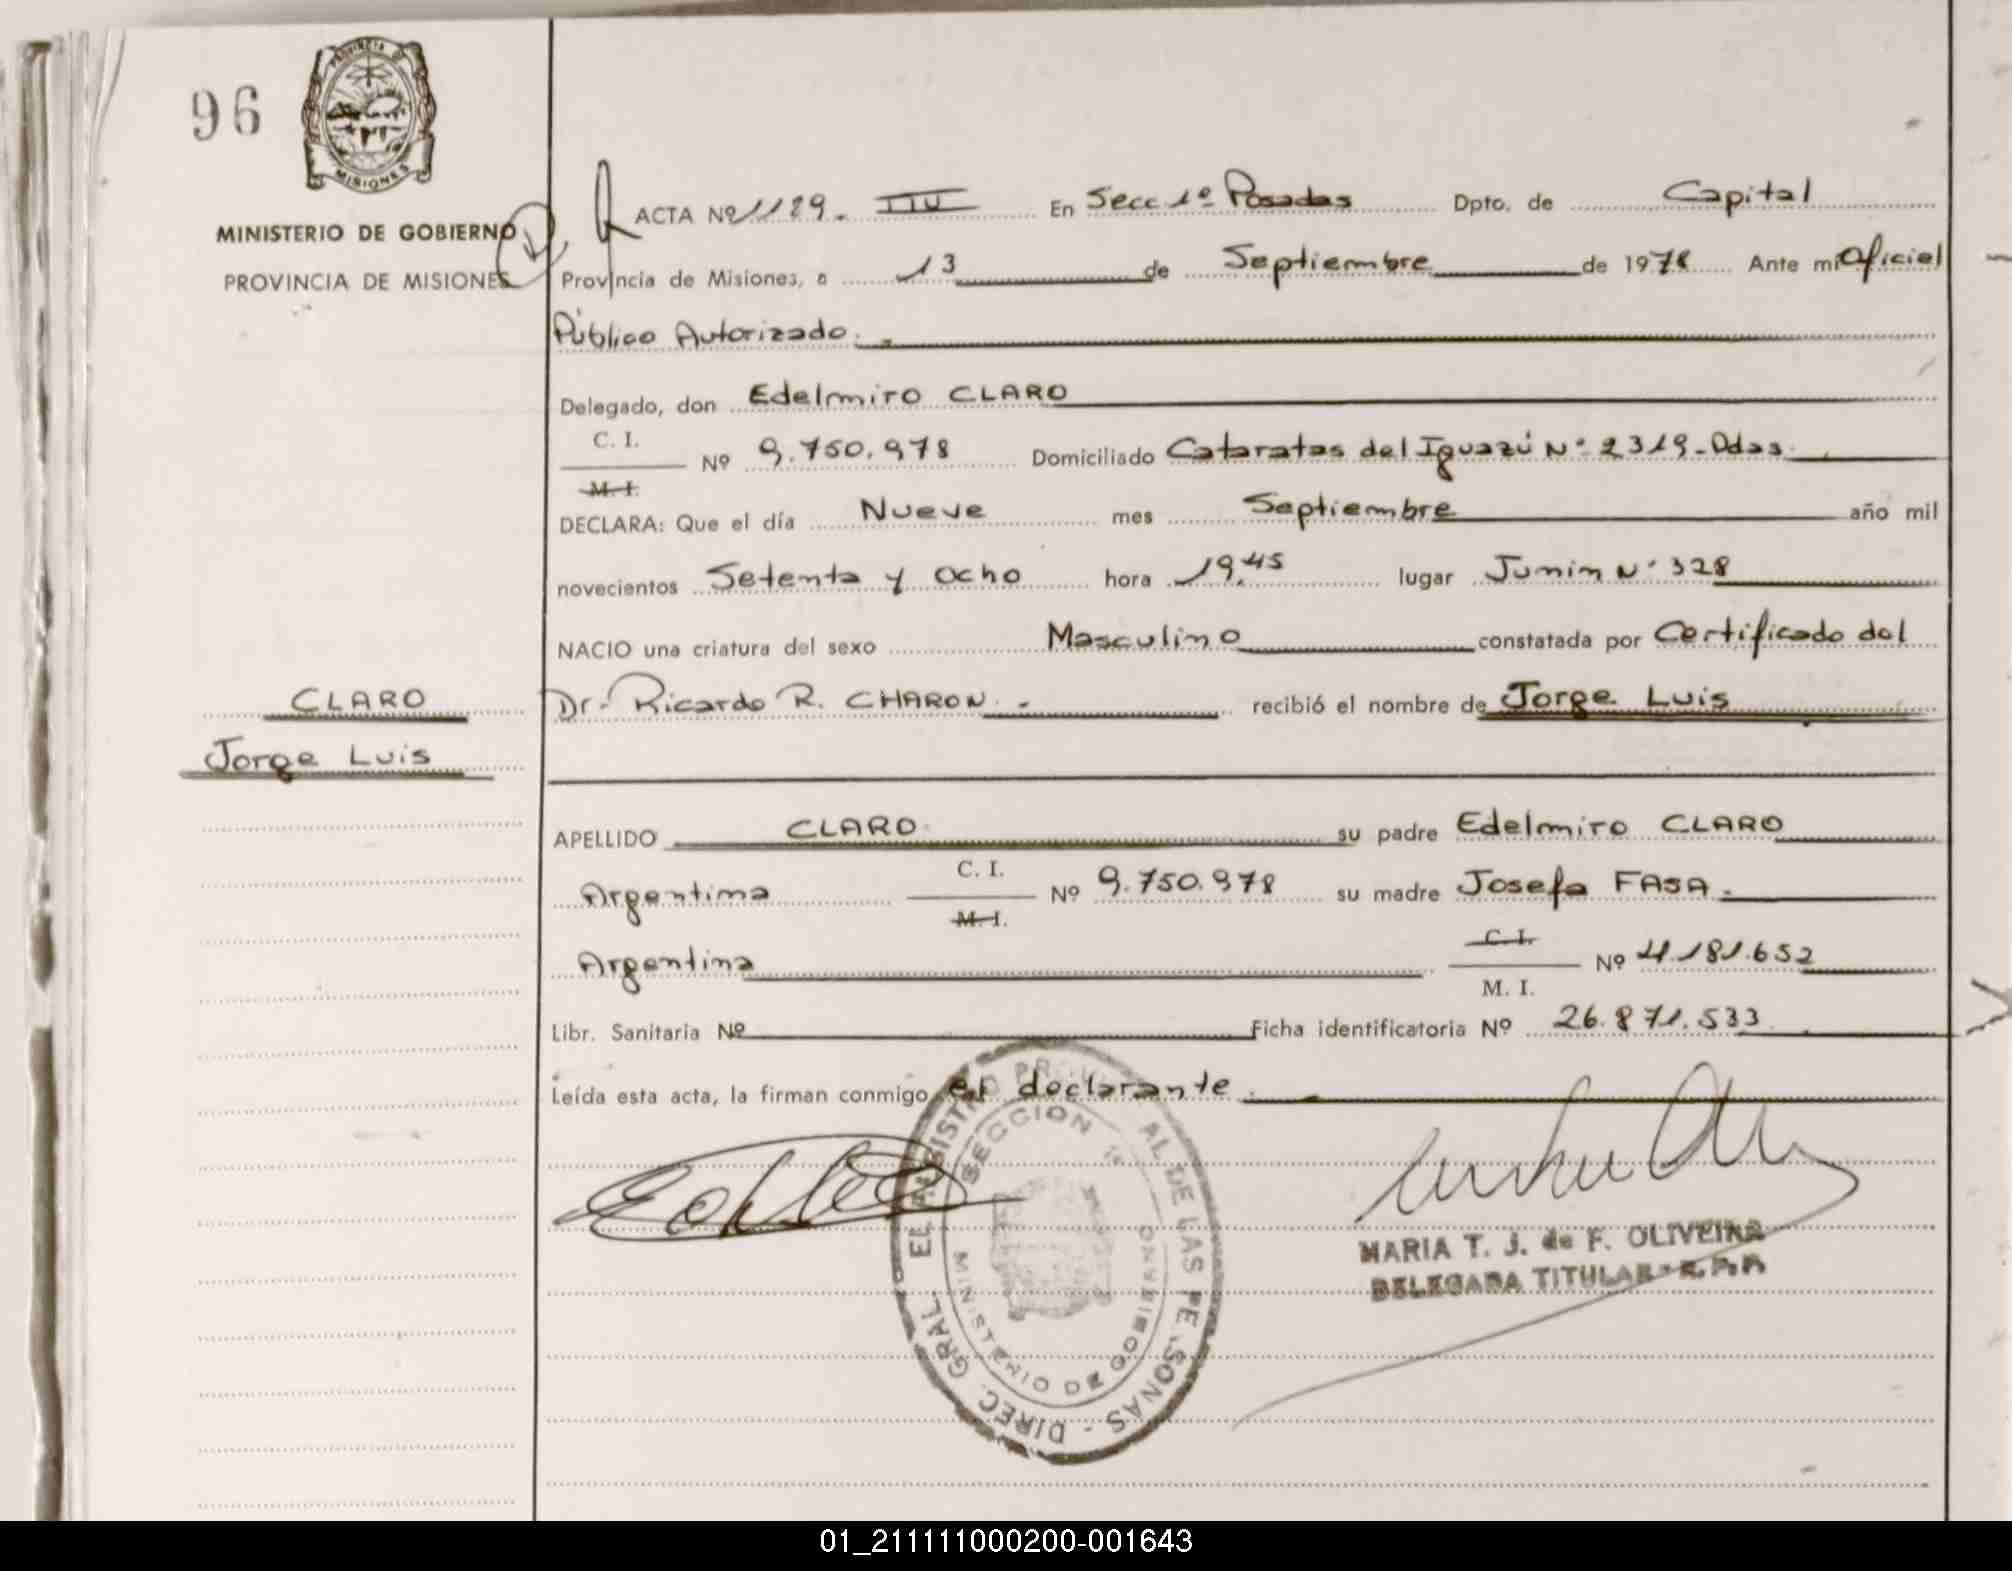 96
PROVINCIA DE
MISIONES
MINISTERIO DE GOBIERNO
PROVINCIA DE MISIONES
ACTA Nº 1129. En Secc 1º Posadas Dpto. de Capital
Provincia de Misiones, a 13 de Septiembre de 1978 Ante mi Oficial
Público Autorizado.
Delegado, don Edelmiro CLARO
C. I.
M. I.
Nº 9.750.978 Domiciliado Cataratas del Iguazú Nº 2319-Pdas.
DECLARA: Que el día Nueve mes Septiembre año mil
novecientos Setenta y Ocho hora 19,45 lugar Junin Nº 328
NACIO una criatura del sexo Masculino constatada por Certificado del
Dr. Ricardo R. CHARON. recibió el nombre de Jorge Luis
CLARO
Jorge Luis
APELLIDO CLARO su padre Edelmiro CLARO
Argentina C. I. M. I. Nº 9.750.978 su madre Josefa FASA.
Argentina C. I. M. I. Nº 4.181.652
Libr. Sanitaria Nº Ficha identificatoria Nº 26.871.533
Leída esta acta, la firman conmigo el declarante.
SECCION 1ª
MINISTERIO DE GOBIERNO
MARIA T. J. de F. OLIVEIRA
DELEGADA TITULAR - R.P.P.
01_211111000200-001643